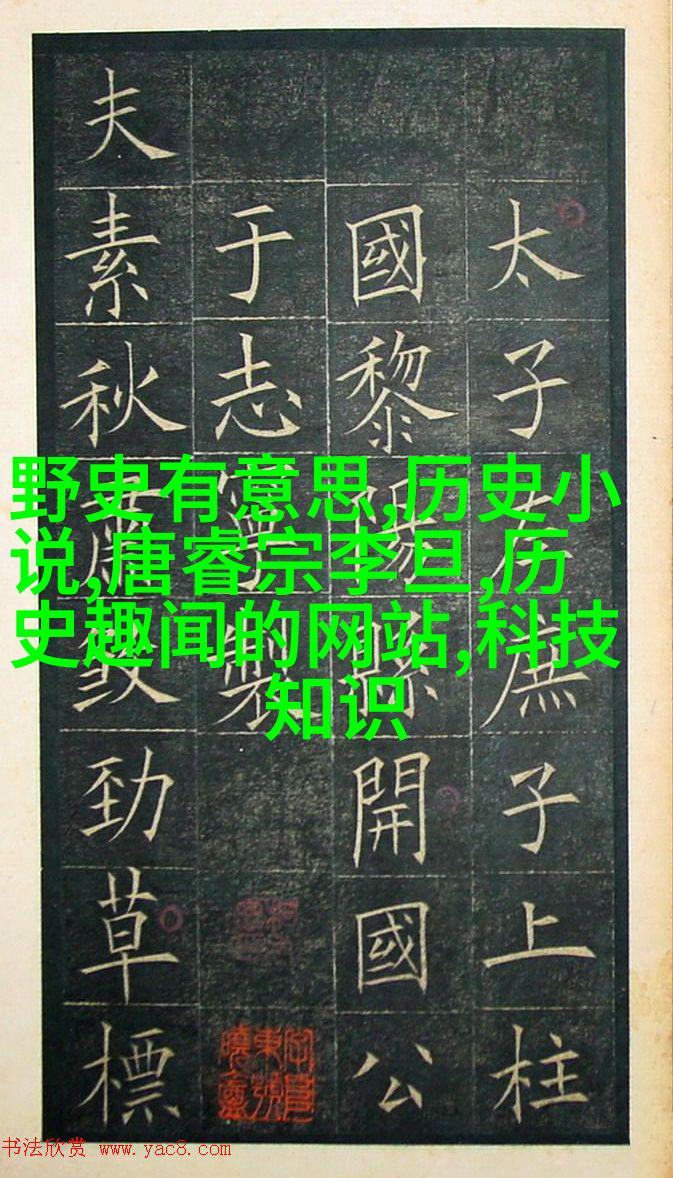 太子左庶子上柱
國黎陽縣開國公
于志寧製
夫素秋肅勁草標
野史有意思,历史小
说,唐睿宗李旦,历
史趣闻的网站,科技
知识
书法欣赏 www.yac8.com